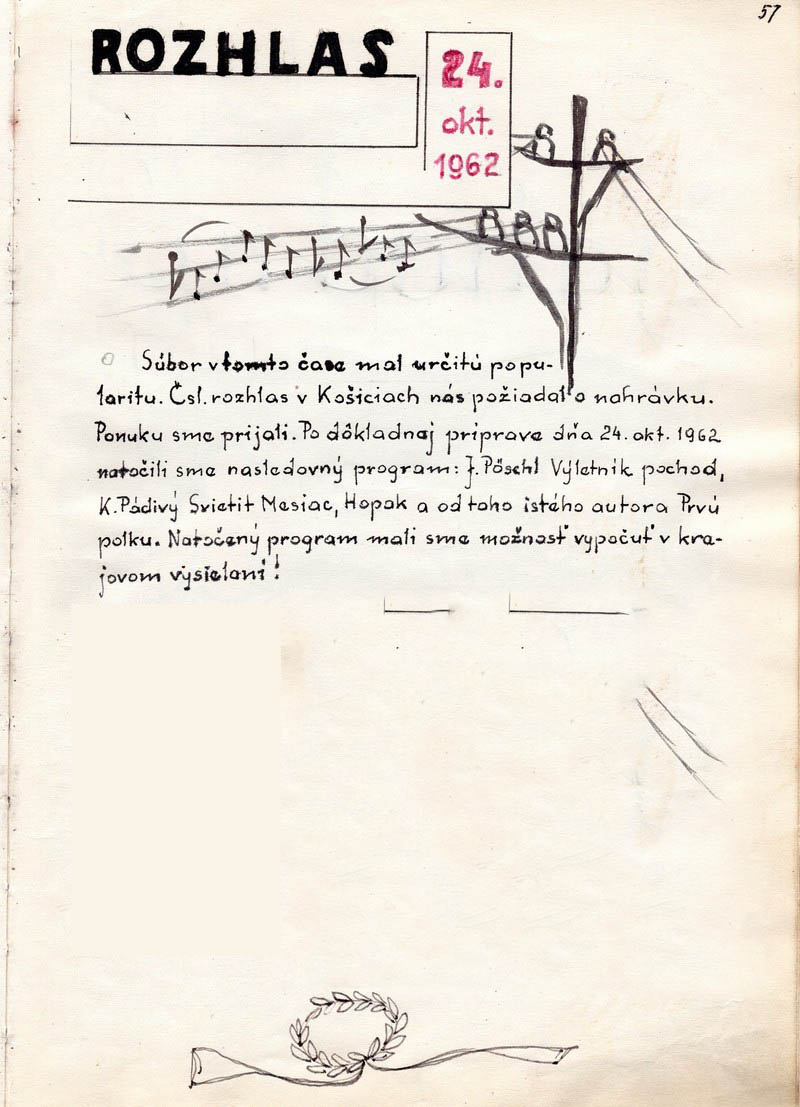 57
ROZHLAS
24.
okt.
1962
Súbor v tomto čase mal určitú popu-
laritu. Čsl. rozhlas v Košiciach nás požiadal o nahrávku.
Ponuku sme prijali. Po dôkladnej príprave dňa 24. okt. 1962
natočili sme nasledovný program: J. Pöschl Výletník pochod,
K. Pádivý Svietit Mesiac, Hopak a od toho istého autora Prvú
polku. Natočený program mali sme možnosť vypočuť v kra-
jovom vysielaní!